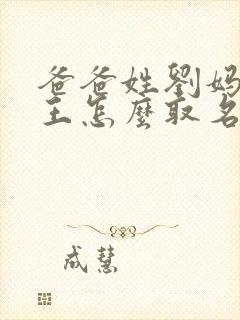 爸爸姓劉媽
王怎麼取名
成慧